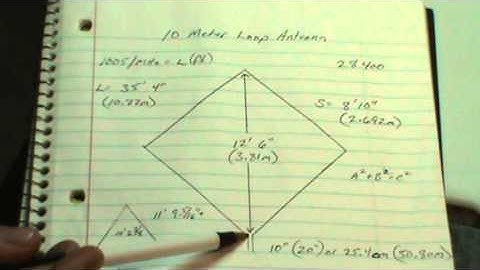 10 Meter Loop Antenna
1005/MHz = L (ft)
28.400
L= 35' 4"
S= 8' 10"
(2.692m)
12' 6"
(3.81m)
A²+B²=C²
10" (20") or 25.4cm (50.80m)